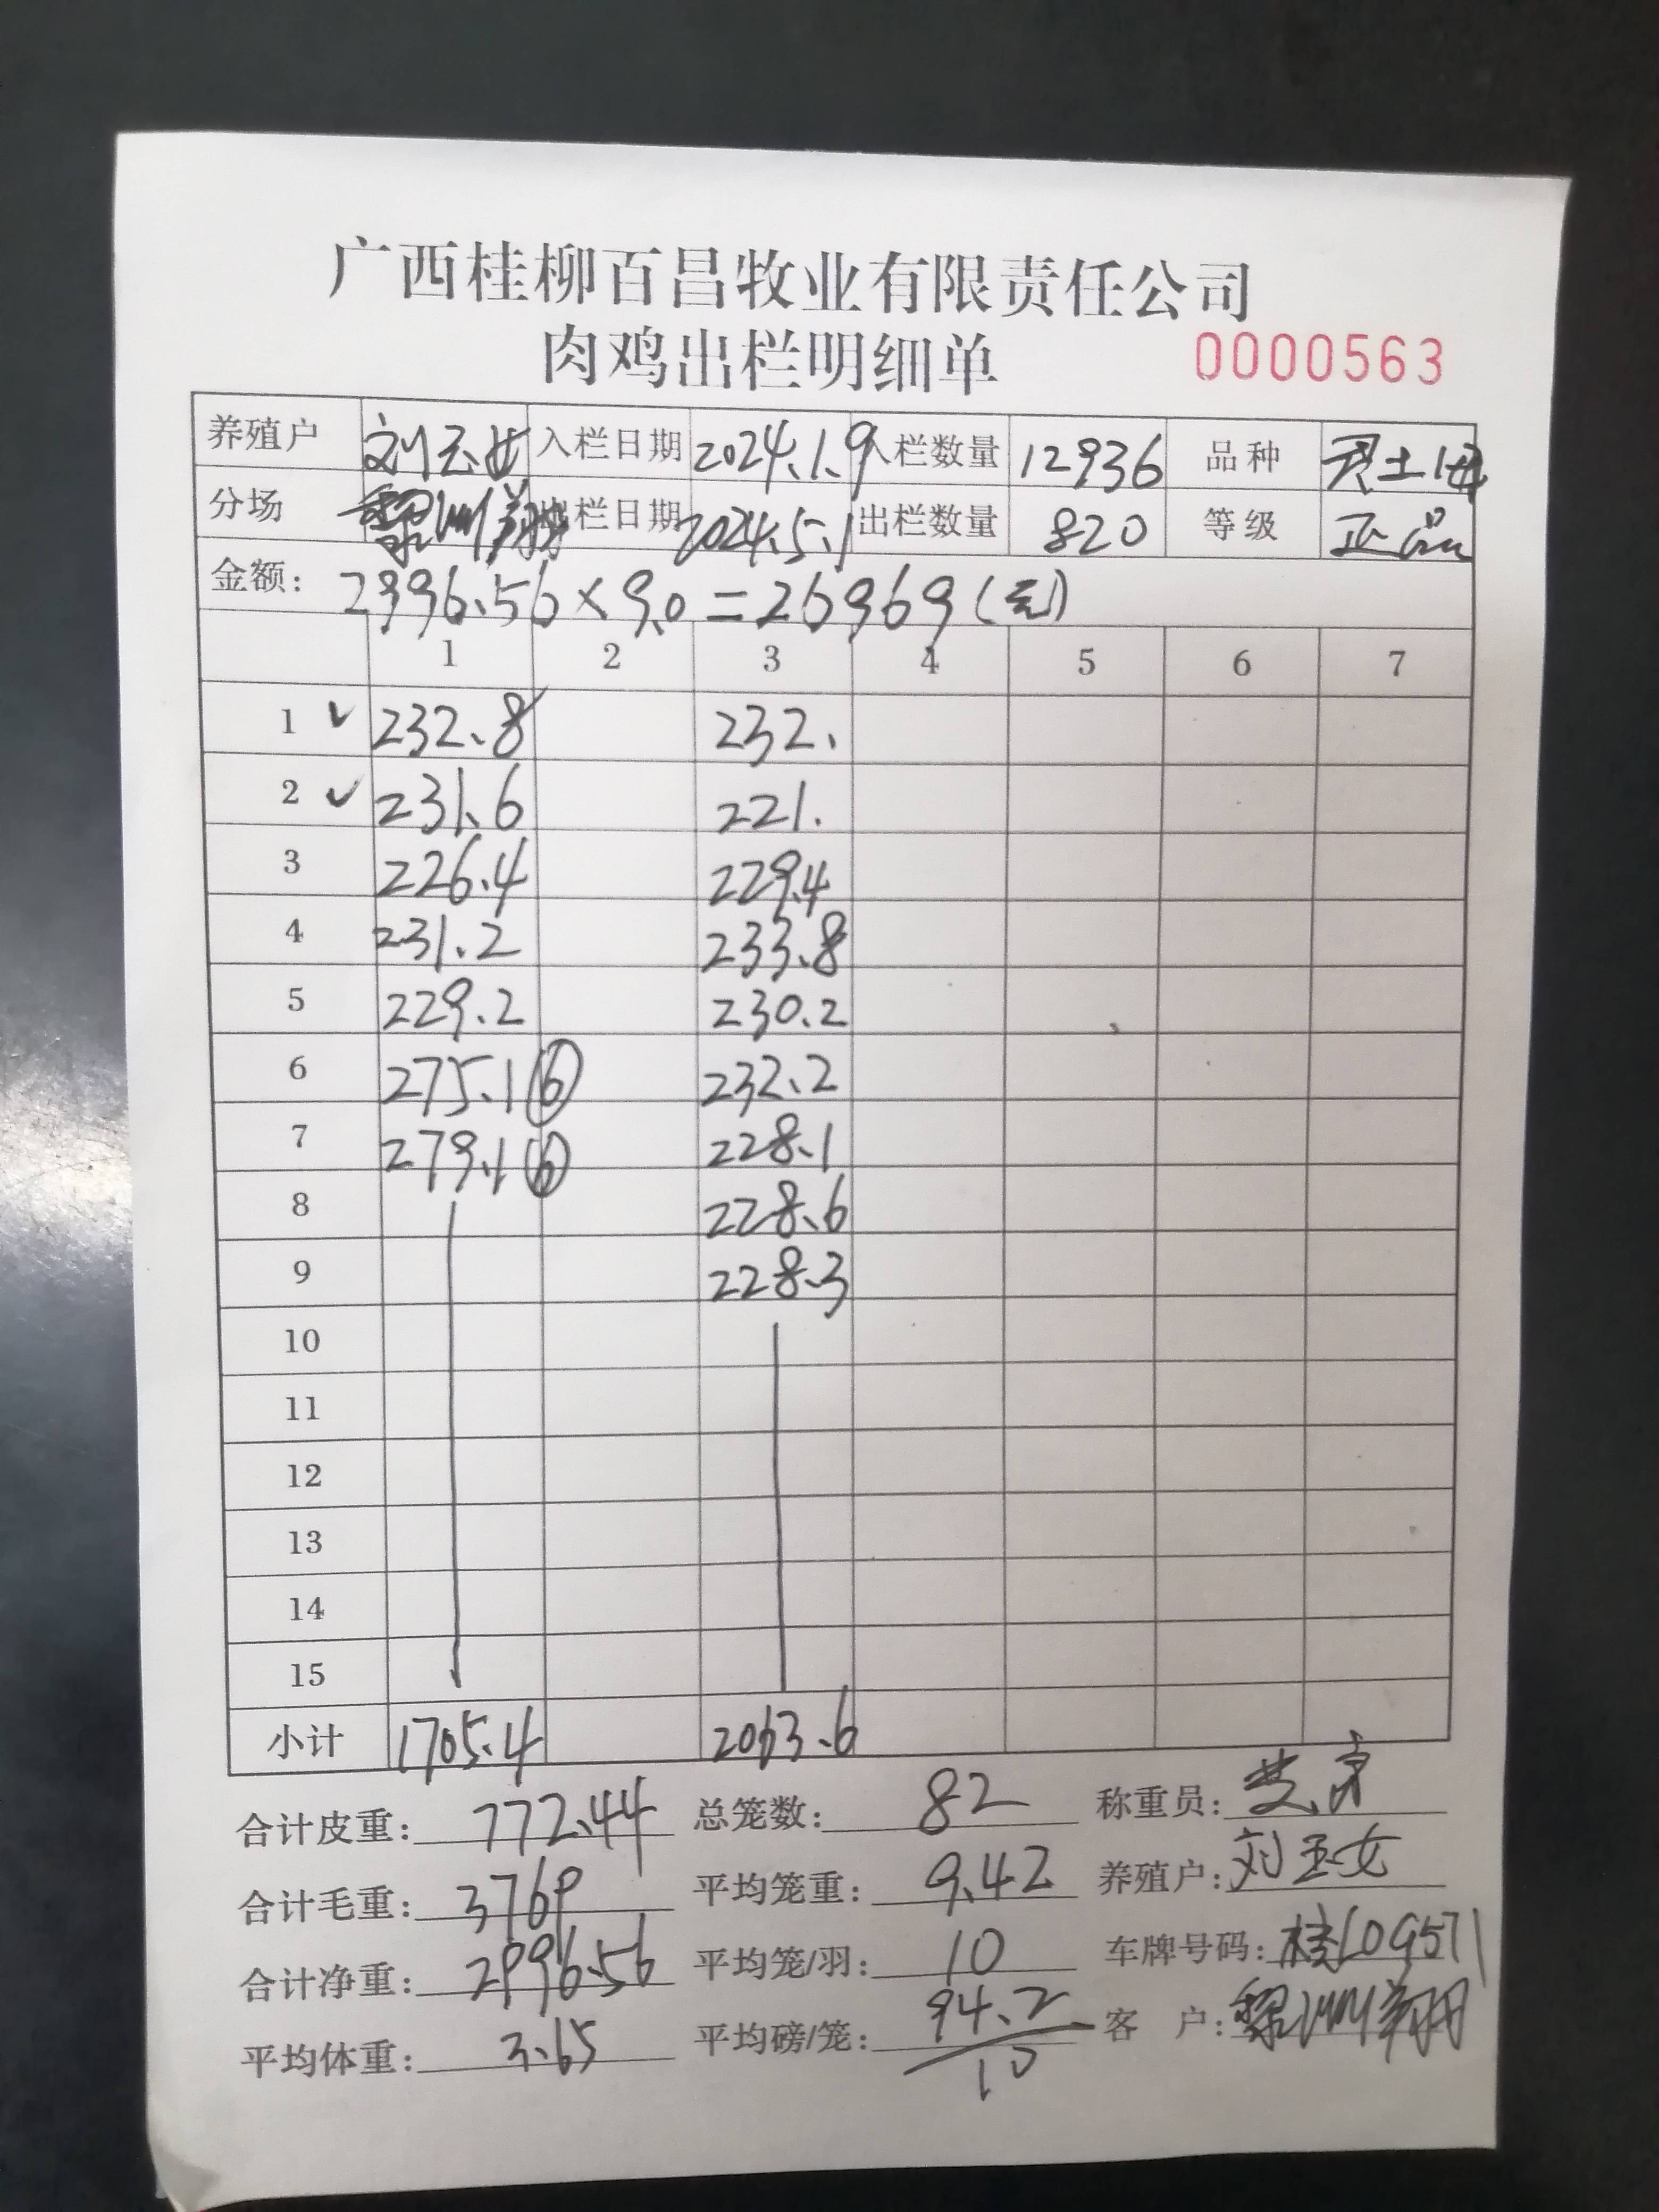 广西桂柳百昌牧业有限责任公司
肉鸡出栏明细单 0000563
养殖户 刘玉女 入栏日期 2024.1.9 入栏数量 12936 品种 土
分场 黎 出栏日期 2024.5.1 出栏数量 820 等级 正品
金额: 2996.56×9.0=26969(元)
1 2 3 4 5 6 7
1 ✓ 232.8 232.
2 ✓ 231.6 221.
3 226.4 229.4
4 231.2 233.8
5 229.2 230.2
6 275.1 ⑥ 232.2
7 279.1 ⑥ 228.1
8 228.6
9 228.3
10
11
12
13
14
15
小计 1705.4 2063.6
合计皮重: 772.44 总笼数: 82 称重员:
合计毛重: 3769 平均笼重: 9.42 养殖户: 刘玉女
合计净重: 2996.56 平均笼/羽: 10 车牌号码: 桂L09571
平均体重: 3.65 平均磅/笼: 94.2/10 客 户: 黎